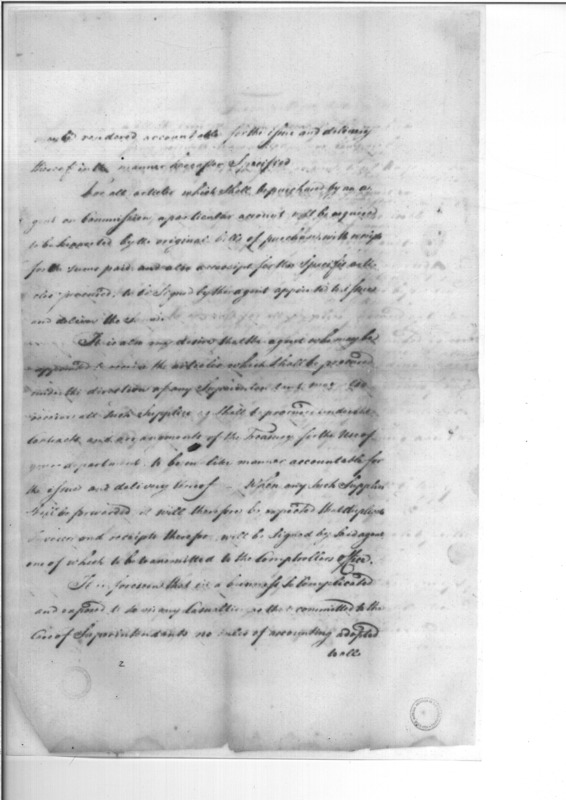 rendered accountable for the issue and delivery
thereof in the manner hereafter specified
For all articles which shall be purchased by an a-
gent on Commission, a particular account will be required
to be supported by the original bills of purchase with receipts
for the sums paid and also a receipt for the specific arti-
cles procured, to be signed by the agent appointed to issue
and deliver the same
It is also my desire that the agent who may be
appointed to receive the articles which shall be procured
under the direction of any Superintendent, may also
receive all such Supplies as shall be procured under the
contracts and arrangements of the Treasury for the use of
your department, to be in like manner accountable for
the issue and delivery thereof. When any such Supplies
shall be forwarded it will therefore be expected that duplicate
invoices and receipts therefor, will be signed by said agent
one of which to be transmitted to the Comptrollers Office.
It is foreseen that in a business so Complicated
and exposed to so many Casualties as that committed to the
Care of Superintendants no rules of accounting adopted
to all
2